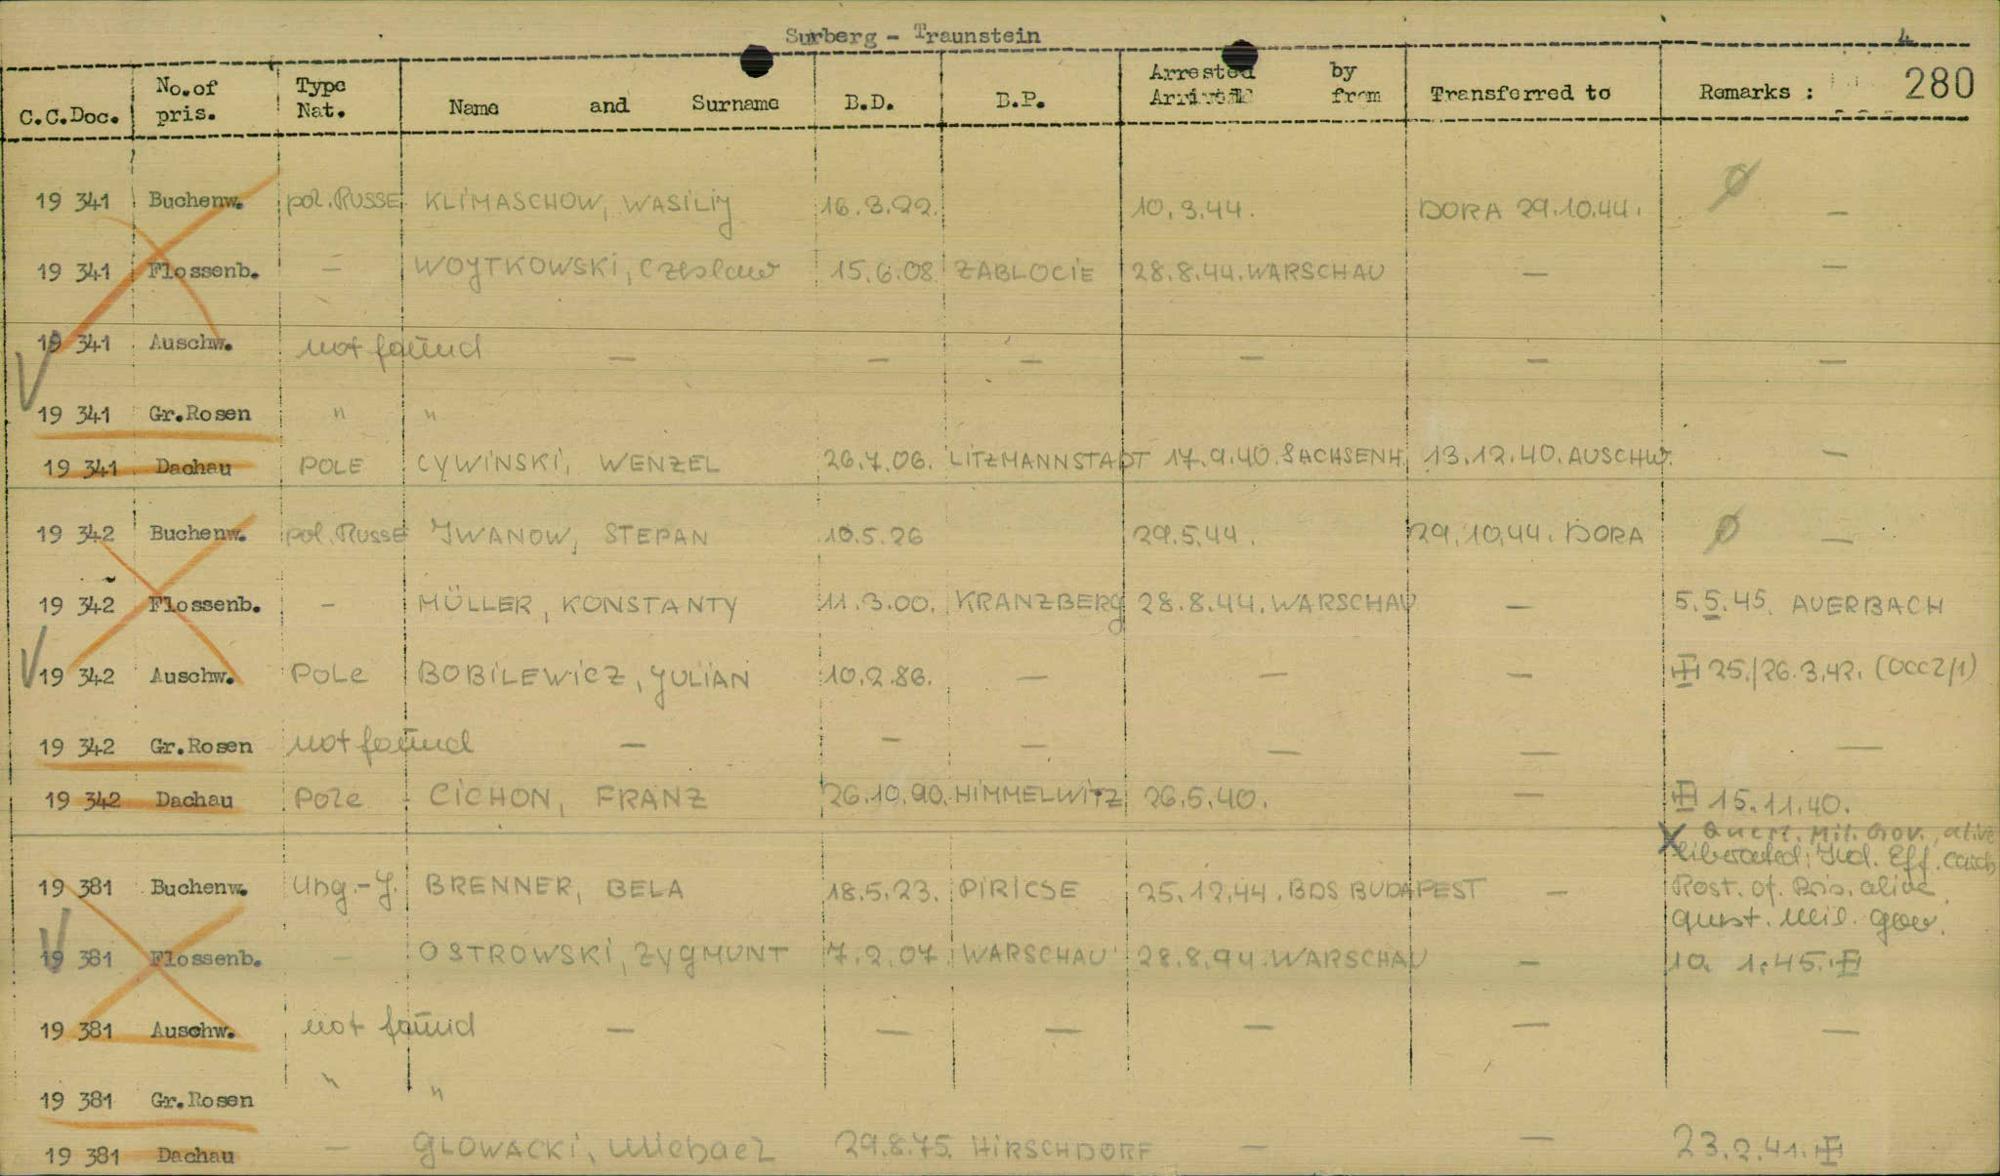 Surberg - Traunstein 4
C.C.Doc. No.of pris. Type Nat. Name and Surname B.D. B.P. Arrested by Arrived from Transferred to Remarks : 280
19 341 Buchenw. pol. RUSSE KLIMASCHOW, WASILIY 16.3.22. 10.3.44. DORA 29.10.44. ø —
19 341 Flossenb. — WOYTKOWSKI, Czeslaw 15.6.08 ZABLOCIE 28.8.44. WARSCHAU — —
19 341 Auschw. not found — — — — — —
19 341 Gr.Rosen " "
19 341 Dachau POLE CYWINSKI, WENZEL 26.7.06. LITZMANNSTADT 17.9.40. SACHSENH. 13.12.40. AUSCHW. —
19 342 Buchenw. pol. Russe IWANOW, STEPAN 10.5.26 29.5.44. 29.10.44. DORA ø —
19 342 Flossenb. — MÜLLER, KONSTANTY 11.3.00. KRANZBERG 28.8.44. WARSCHAU — 5.5.45. AUERBACH
19 342 Auschw. Pole BOBILEWICZ, JULIAN 10.2.86. — — — 25./26.3.42. (OCC2/1)
19 342 Gr.Rosen not found — — — — — —
19 342 Dachau Pole CICHON, FRANZ 26.10.90. HIMMELWITZ 26.5.40. — 15.11.40.
X Quest. Mil. Gov., alive
liberated; Ind. Eff. cards
19 381 Buchenw. Ung.-J. BRENNER, BELA 18.5.23. PIRICSE 25.12.44. BDS BUDAPEST — Rost. of Pris. alive
quest. Mil. gov.
19 381 Flossenb. — OSTROWSKI, ZYGMUNT 7.2.07. WARSCHAU 28.8.44. WARSCHAU — 10. 1.45.
19 381 Auschw. not found — — — — — —
19 381 Gr.Rosen " "
19 381 Dachau — GLOWACKI, Michael 29.8.75. HIRSCHDORF — — 23.2.41.